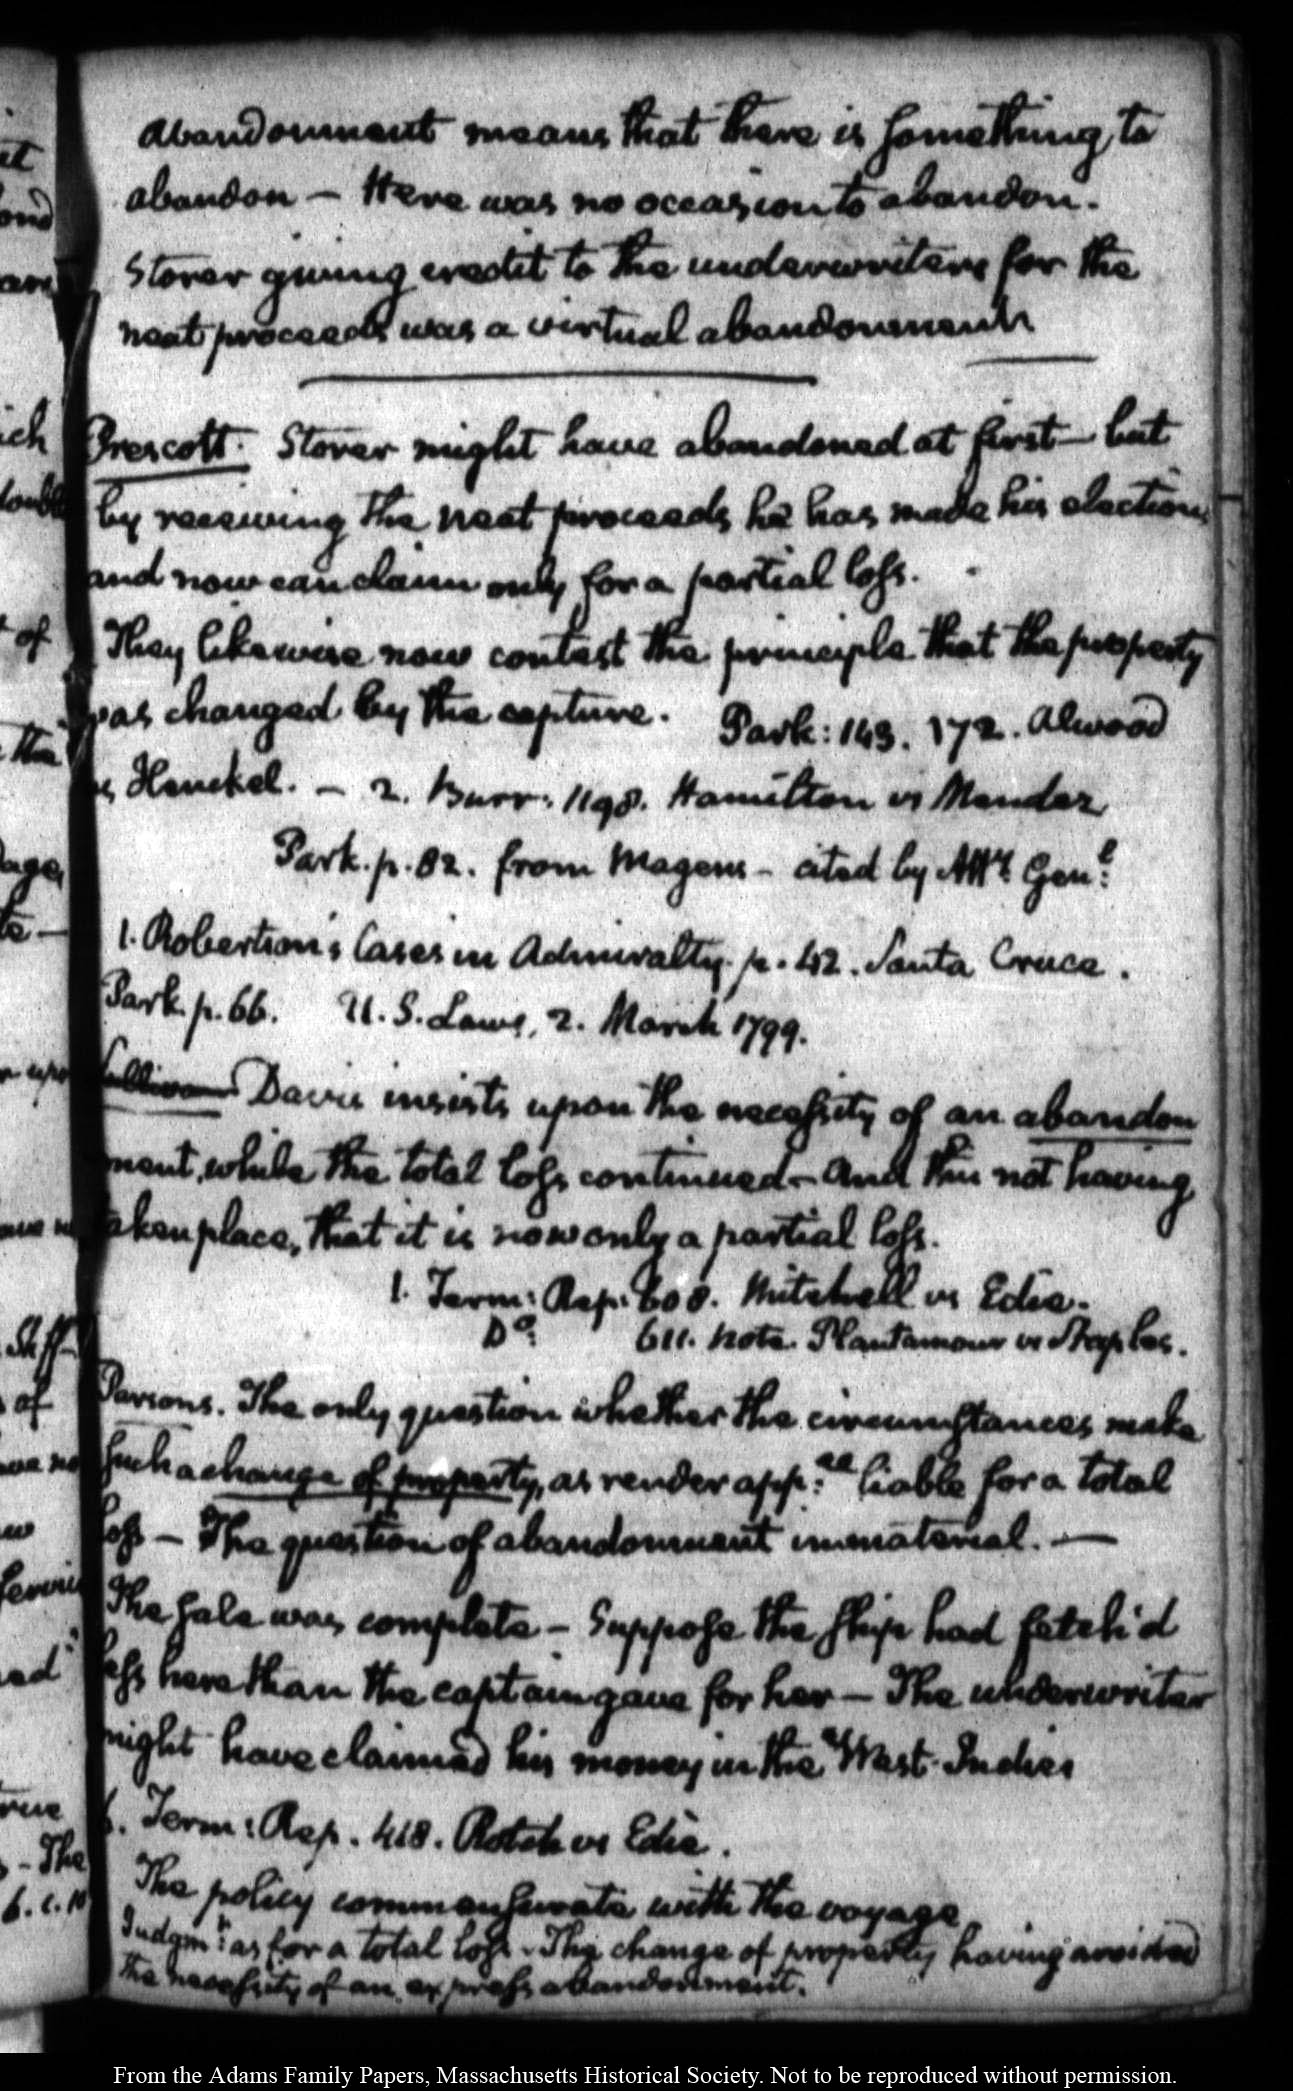 abandonment means that there is something to
abandon — Here was no occasion to abandon.
Storer giving credit to the underwriters for the
neat proceeds was a virtual abandonment
Prescott. Storer might have abandoned at first — but
by receiving the neat proceeds he has made his election
and now can claim only for a partial loss.
They likewise now contest the principle that the property
was changed by the capture. Park: 143. 172. Alwood
vs Henckel. — 2. Burr: 1198. Hamilton vs Mendez
Park. p. 82. from Magens — cited by Atty. Gen:l
1. Robertson's Cases in Admiralty. p. 42. Santa Cruce.
Park. p. 66. U. S. Laws, 2. March 1799.
Sullivan Davis insists upon the necessity of an abandon
ment, while the total loss continued — and this not having
taken place, that it is now only a partial loss.
1. Term: Rep: 608. Mitchell vs Edie.
Do: 611. note. Plantamour vs Staples.
Parsons. The only question whether the circumstances make
such a change of property, as render app:ee liable for a total
loss — The question of abandonment immaterial. —
The sale was complete — Suppose the ship had fetch'd
less here than the captain gave for her — The underwriter
might have claimed his money in the West-Indies
6. Term: Rep. 418. Rotch vs Edie.
The policy commensurate with the voyage
Judgm:t as for a total loss. The change of property having avoided
the necessity of an express abandonment.
From the Adams Family Papers, Massachusetts Historical Society. Not to be reproduced without permission.